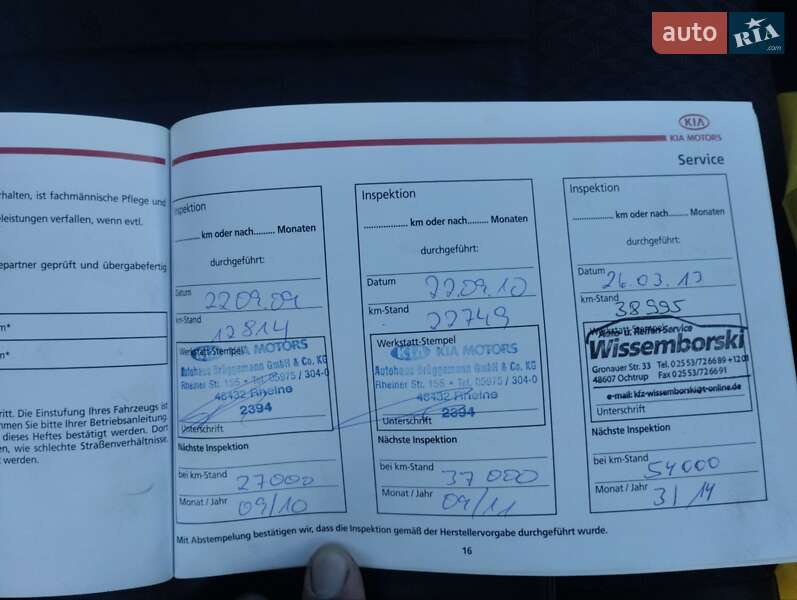 auto RIA .com
KIA
KIA MOTORS
Service
rhalten, ist fachmännische Pflege und
eleistungen verfallen, wenn evtl.
epartner geprüft und übergabefertig
m*
m*
ritt. Die Einstufung Ihres Fahrzeugs ist
men Sie bitte Ihrer Betriebsanleitung
dieses Heftes bestätigt werden. Dort
en, wie schlechte Straßenverhältnisse,
werden.
nspektion
......... km oder nach......... Monaten
durchgeführt:
Datum 22.09.09
km-Stand 12814
Werkstatt-Stempel
KIA MOTORS
Autohaus Brüggemann GmbH & Co. KG
Rheiner Str. 155 • Tel. 05975 / 304-0
48432 Rheine
2394
Unterschrift
Nächste Inspektion
bei km-Stand 27000
Monat / Jahr 09/10
Inspektion
.................. km oder nach......... Monaten
durchgeführt:
Datum 22.09.10
km-Stand 22749
Werkstatt-Stempel
KIA KIA MOTORS
Autohaus Brüggemann GmbH & Co. KG
Rheiner Str. 155 • Tel. 05975 / 304-0
48432 Rheine
2394
Unterschrift
Nächste Inspektion
bei km-Stand 37000
Monat / Jahr 09/11
Inspektion
.................. km oder nach......... Monaten
durchgeführt:
Datum 26.03.13
km-Stand 38995
Werkstatt-Stempel
Auto- u. Reifen-Service
Wissemborski
Gronauer Str. 33 Tel. 0 25 53/72 66 89 + 12 01
48607 Ochtrup Fax 0 25 53/72 66 91
e-mail: kfz-wissemborski@t-online.de
Unterschrift
Nächste Inspektion
bei km-Stand 54000
Monat / Jahr 3/14
Mit Abstempelung bestätigen wir, dass die Inspektion gemäß der Herstellervorgabe durchgeführt wurde.
16